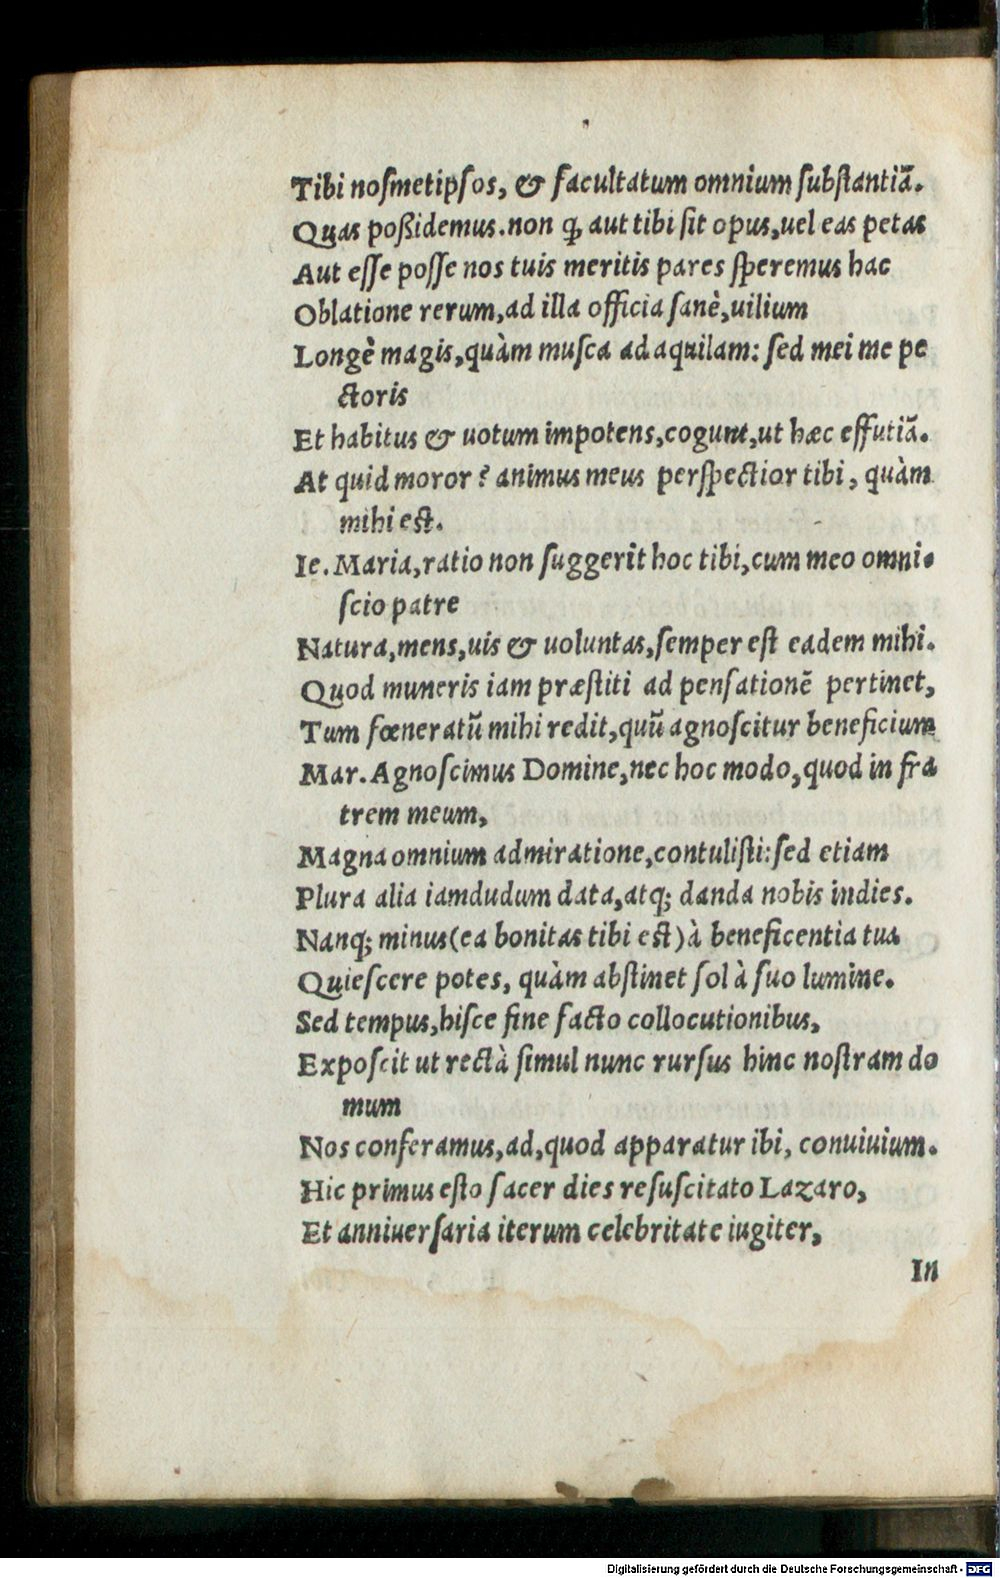 Tibi noſmetipſos, & facultatum omnium ſubſtantiā.
Quas poßidemus. non ꝙ aut tibi ſit opus, uel eas petas
Aut eſſe poſſe nos tuis meritis pares ſperemus hac
Oblatione rerum, ad illa officia ſanè, uilium
Longè magis, quàm muſca ad aquilam: ſed mei me pe
ctoris
Et habitus & uotum impotens, cogunt, ut hæc effutiā.
At quid moror? animus meus perſpectior tibi, quàm
mihi eſt.
Ie. Maria, ratio non ſuggerit hoc tibi, cum meo omni-
ſcio patre
Natura, mens, uis & uoluntas, ſemper eſt eadem mihi.
Quod muneris iam præſtiti ad penſationē pertinet,
Tum fœneratū mihi redit, quū agnoſcitur beneficium
Mar. Agnoſcimus Domine, nec hoc modo, quod in fra
trem meum,
Magna omnium admiratione, contuliſti: ſed etiam
Plura alia iamdudum data, atq; danda nobis indies.
Nanq; minus (ea bonitas tibi eſt) à beneficentia tua
Quieſcere potes, quàm abſtinet ſol à ſuo lumine.
Sed tempus, hiſce fine facto collocutionibus,
Expoſcit ut rectà ſimul nunc rurſus hinc noſtram do
mum
Nos conferamus, ad, quod apparatur ibi, conuiuium.
Hic primus eſto ſacer dies reſuſcitato Lazaro,
Et anniuerſaria iterum celebritate iugiter,
In
Digitalisierung gefördert durch die Deutsche Forschungsgemeinschaft - DFG